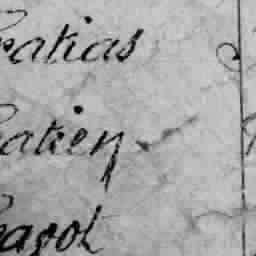 ratias
atien
agot